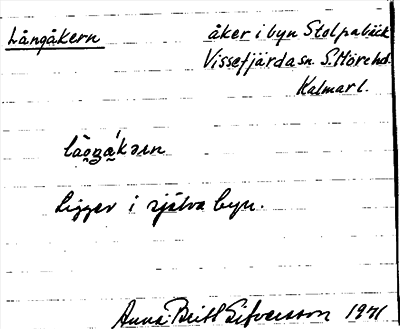 Långåkern
åker i byn Stolpabäck
Vissefjärda sn. S. Möre hd.
Kalmar l.
Ligger i själva byn.
Anna-Britt Sifversson 1971